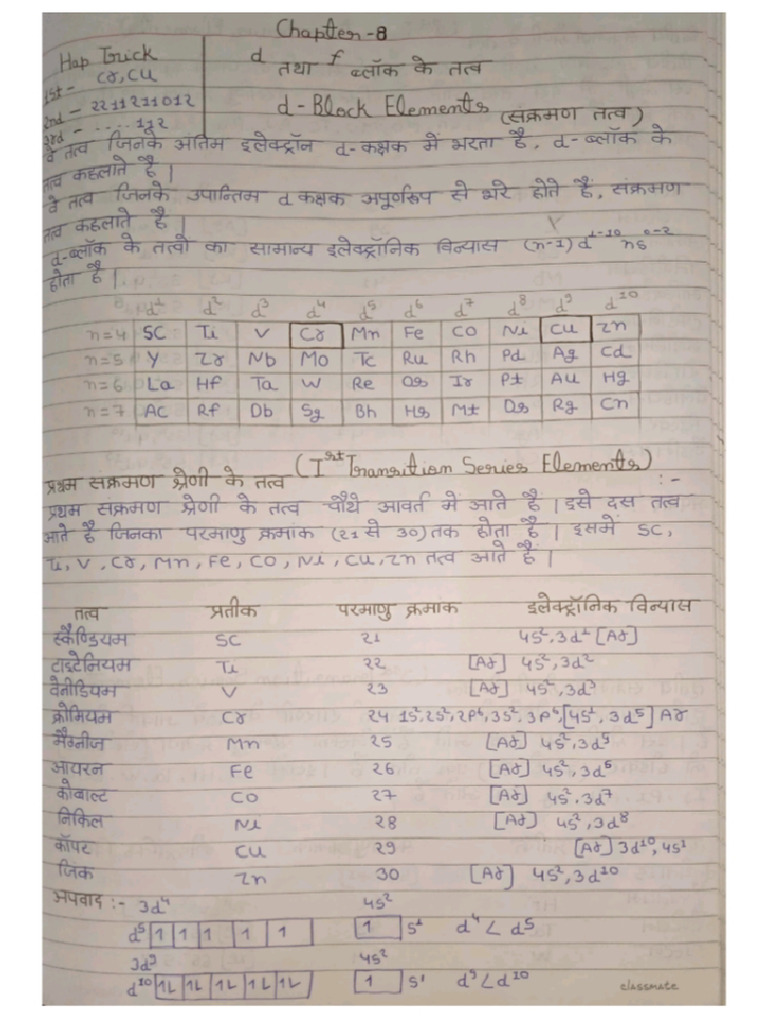 Chapter-8
Hap Trick
1st - Cr, Cu
2nd - 2211211012
3rd - ..... 112
d तथा f ब्लॉक के तत्व
d-Block Elements (संक्रमण तत्व)
वे तत्व जिनके अंतिम इलेक्ट्रॉन d-कक्षक में भरता है, d-ब्लॉक के
तत्व कहलाते है |
वे तत्व जिनके उपान्तिम d कक्षक अपूर्णरूप से भरे होते हैं, संक्रमण
तत्व कहलाते है |
d-ब्लॉक के तत्वो का सामान्य इलेक्ट्रॉनिक विन्यास (n-1)d¹⁻¹⁰ ns⁰⁻²
होता है |
d¹ d² d³ d⁴ d⁵ d⁶ d⁷ d⁸ d⁹ d¹⁰
n=4 SC Ti V Cr Mn Fe CO Ni Cu Zn
n=5 Y Zr Nb Mo Tc Ru Rh Pd Ag Cd
n=6 La Hf Ta W Re Os Ir Pt Au Hg
n=7 AC Rf Db Sg Bh Hs Mt Ds Rg Cn
प्रथम संक्रमण श्रेणी के तत्व (Ist Transition Series Elements) :-
प्रथम संक्रमण श्रेणी के तत्व चौथे आवर्त में आते है | इसे दस तत्व
आते है जिनका परमाणु क्रमांक (21 से 30) तक होता है | इसमें SC,
Ti, V, Cr, Mn, Fe, CO, Ni, Cu, Zn तत्व आते हैं |
तत्व प्रतीक परमाणु क्रमांक इलेक्ट्रॉनिक विन्यास
स्कैण्डियम SC 21 4S², 3d¹ [Ar]
टाइटेनियम Ti 22 [Ar] 4S², 3d²
वेनीडियम V 23 [Ar] 4S², 3d³
क्रोमियम Cr 24 1S², 2S², 2P⁶, 3S², 3P⁶, [4S¹, 3d⁵] Ar
मैग्नीज Mn 25 [Ar] 4S², 3d⁵
आयरन Fe 26 [Ar] 4S², 3d⁶
कोबाल्ट CO 27 [Ar] 4S², 3d⁷
निकिल Ni 28 [Ar] 4S², 3d⁸
कॉपर Cu 29 [Ar] 3d¹⁰, 4S¹
जिंक Zn 30 [Ar] 4S², 3d¹⁰
अपवाद :- 3d⁴ 4S²
d⁵ 1 1 1 1 1 1 S¹ d⁴ < d⁵
3d⁹ 4S²
d¹⁰ 1L 1L 1L 1L 1L 1 S¹ d⁹ < d¹⁰
classmate